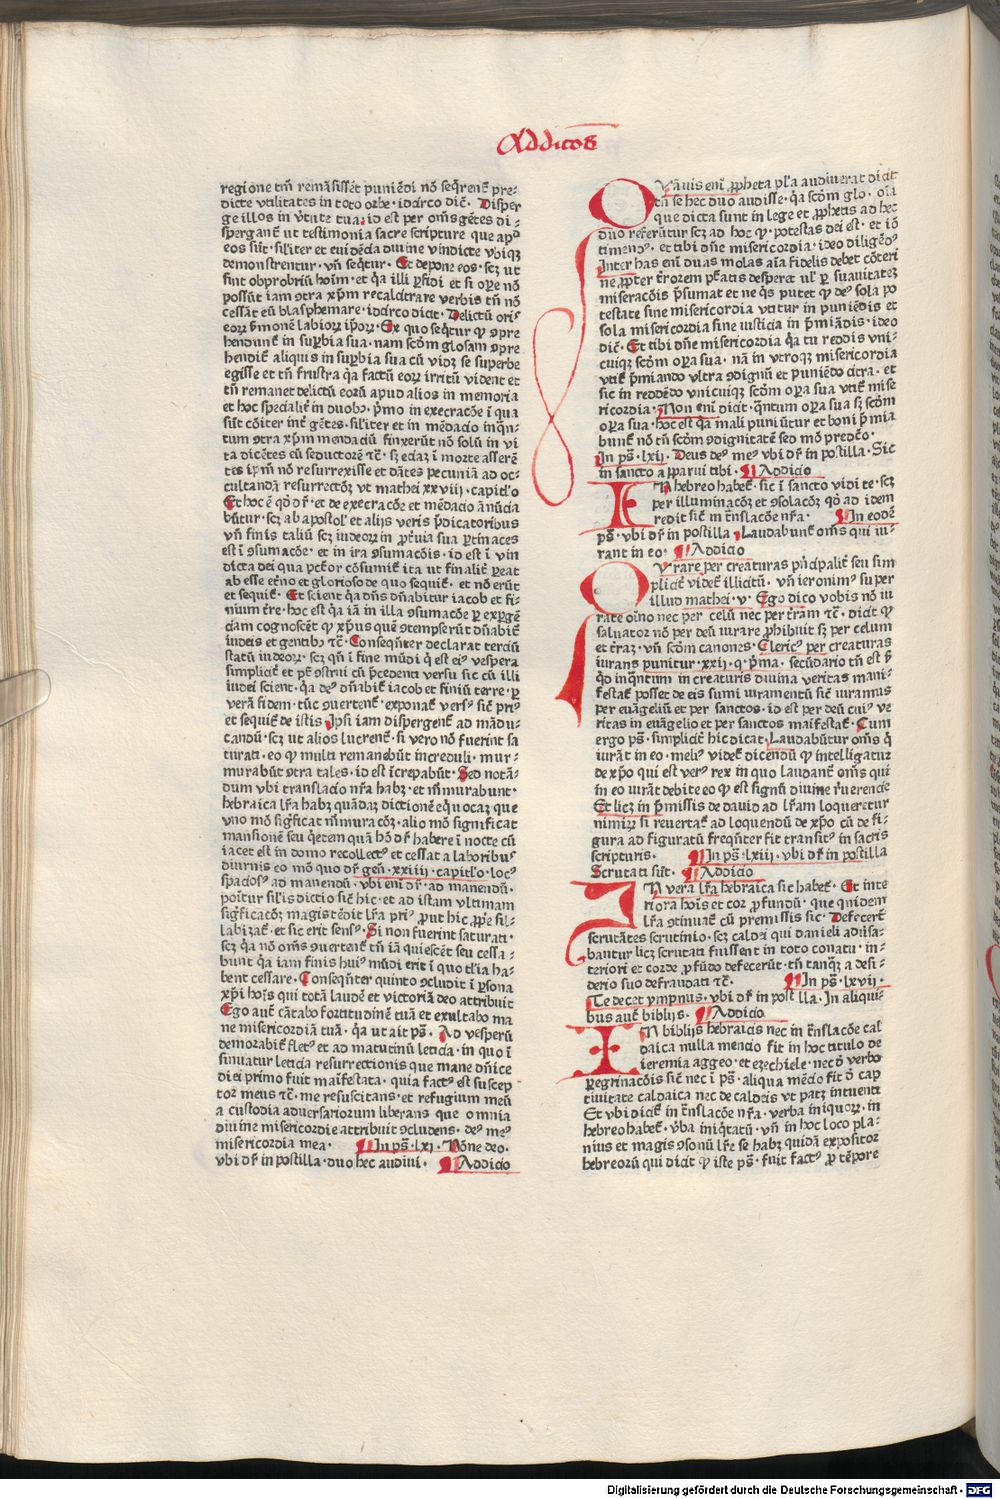 Addicōs
regione tm̄ remāsissēt puniēdi nō seq̄renť pre⸗
dicte vtilitates in toto orbe · idcirco dic̄t · Disper
ge illos in v̓tute tua · id est per om̄s gētes di⸗
spergant̄ ut testimonia sacre scripture que apd̓
eos sūt · sil̓iter et euidēcia diuine vindicte vbiq̨
demonstrentur · vn̄ seq̄tur · Et depone eos · scz ut
sint obprobriū hoīm · et q̄a illi ꝑfidi et si oꝑe nō
possūt iam ꝯtra xp̄m recalcitrare verbis tn̄ nō
cessāt eū blasphemare · idcirco dicit · Delictū oris
eorꝝ s̓monē labiorꝝ ip̄orꝝ · Ex quo seq̄tur ꝙ ꝯpre
hendunť in suꝑbia sua · nam scd̄m glosam ꝯpre
hendiť aliquis in suꝑbia sua cū videt se superbe
egisse et tn̄ frustra q̄a factū eorꝝ irritū vident et
tn̄ remanet delictū eorū apud alios in memoria
et hoc specialiť in duobꝰ · p̓mo in execracōe ī qua
sūt cōiter int̓ gētes · sil̓iter et in mēdacio inq̄n⸗
tum ꝯtra xp̄m mendaciū finxerūt nō solū in vi
ta dicētes eū seductorē ⁊c̄ · sꝫ etiā ī morte asserē
tes ip̄m nō resurrexisse et dātes pecuniā ad oc⸗
cultandā resurrectōeꝫ vt mathei xxviij · capitl̓o
Et hoc ē qd̓ dr̄ · et de execracōe et mēdacio ānūcia
būtur · scꝫ ab apostol̓ et alijs veris p̓dicatoribus
vn̄ finis taliū scꝫ iudeorꝝ in ꝓt̓uia sua ꝑtinaces
est ī ꝯsumacōe · et in ira ꝯsumacōis · id est ī vin
dicta dei qua pct̄or cōsumiť ita ut finaliť ꝑeat
ab esse et̓no et glorioso de quo sequiť · et nō erūt
et sequiť · Et scient q̄a dn̄s dn̄abitur iacob et fi⸗
nium t̓re · hoc est q̄a iā in illa ꝯsumacōe ꝑ exꝑgē
ciam cognoscēt ꝙ xp̄us quē ꝯtempserūt dn̄abiť
iudeis et gentibꝰ ⁊c̄ · Conseqn̄ter declarat terciū
statū iudeorꝝ · scꝫ qn̄ ī fine mūdi q̄ est eiꝰ vespera
simpliciť et pt̄ ꝯstrui cū p̓cedenti versu sic cū illi
iudei scient · q̄a deꝰ dn̄abiť iacob et finiū terre · ꝑ
verā fidem · tūc ꝯuertenť · exponať versꝰ sic̄ priꝰ
et sequiť de istis · Ipsi iam dispergenť ad mādu⸗
candū · scꝫ ut alios lucrenť · si vero nō fuerint sa
turati · eo ꝙ multi remanebūt increduli · mur⸗
murabūt ꝯtra tales · id est īcrepabūt · Sed notā⸗
dum vbi translacio nr̄a habꝫ · et m̓murabunt ·
hebraica lr̄a habꝫ quādaꝫ dictionē eq̄uocaꝫ que
vno mō sig̓ficat m̓muracōeꝫ · alio mō significat
mansionē seu q̓etem quā hō dr̄ habere ī nocte cū
iacet est in domo recollectꝰ et cessat a laboribꝰ
diurnis eo mō quo dr̄ gen̄ · xxiiij · capitl̓o · locꝰ
spaciosꝰ ad manendū · vbi enī dr̄ · ad manendū ·
poītur sil̓is dictio sic̄ hic · et ad istam vltimam
sig̓ficacōeꝫ magis tēdit lr̄a priꝰ ꝓut hic ꝓp̄e sil⸗
labizať · et sic erit sensꝰ · Si non fuerint saturati ·
scꝫ q̄a nō om̄s ꝯuertenť tn̄ iā quiescēt seu cessa⸗
bunt q̄a iam finis huiꝰ mūdi erit ī quo tl̓ia ha⸗
bent cessare · Conseqn̄ter quinto ꝯcludit ī ꝑsona
xp̄i hoīs qui totā laudē et victoriā deo attribuit
Ego aūt cātabo fortitudinē tuā et exultabo ma
ne misericordiā tuā · q̄a ut ait ps̄ · Ad vesperū
demorabiť fletꝰ et ad matutinū leticia · in quo ī
sinuatur leticia resurrectionis que mane dn̄ice
diei primo fuit maīfestata · quia factꝰ est suscep
tor meus ⁊c̄ · me resuscitans · et refugium meū
a custodia aduersariorum liberans que omnia
diuine misericordie attribuit ꝯcludens · deꝰ meꝰ
misericordia mea · ¶ In ps̄ · lxi · Nōne deo ·
vbi dr̄ in postilla · duo hec audiui · ¶ Addicio
Qvāuis enī ꝓpheta pl̓a audiuerat dicit
tn̄ se hec duo audisse · q̄a scd̄m glo · oīa
que dicta sunt in lege et ꝓphetis ad hec
duo referūtur scꝫ ad hoc ꝙ · potestas dei est · et iō
timendꝰ · et tibi dn̄e misericordia · ideo diligēdꝰ
Inter has enī duas molas aīa fidelis debet cōteri
ne ꝓpter t̓rorem pc̄tatis desperet ul̓ ꝑ suauitateꝫ
miseracōis p̓sumat et ne q̓s putet ꝙ deꝰ sola po
testate sine misericordia vtatur in puniēdis et
sola misericordia sine iusticia in p̓miādis · ideo
dic̄t · Et tibi dn̄e misericordia q̄a tu reddis vni⸗
cuiqꝫ scd̄m oꝑa sua · nā in vtroqꝫ misericordia
vtiť p̓miando vltra ꝯdignū et puniēdo citra · et
sic in reddēdo vnicuiqꝫ scd̄m oꝑa sua vtiť mise
ricordia · Non enī dicit · q̄ntum oꝑa sua sꝫ scd̄m
oꝑa sua · hoc est q̄a mali puniūtur et boni p̓mia
bunť nō tn̄ scd̄m ꝯdignitatē sed mō predc̄o ·
In ps̄ · lxij · Deus deꝰ meꝰ vbi dr̄ in postilla · Sic
in sancto apparui tibi · ¶ Addicio
In hebreo habeť · sic ī sancto vidi te · scꝫ
per illuminacōeꝫ et ꝯsolacōeꝫ qd̓ ad idem
redit sic̄ in t̓nslacōe nr̄a · ¶ In eodē
ps̄ · vbi dr̄ in postilla · Laudabunť om̄s qui iu⸗
rant in eo · ¶ Addicio
Iurare per creaturas pn̓cipaliť seu sim
pliciť videť illicitū · vn̄ ieronimꝰ super
illud mathei · v · Ego dico vobis nō iu
rate oīno nec per celū nec per t̓ram ⁊c̄ · dicit ꝙ
saluator nō per deū iurare ꝓhibuit sꝫ per celum
et t̓raꝫ · vn̄ scd̄m canones · Clericꝰ per creaturas
iurans punitur · xxij · q · p̓ma · secūdario tn̄ est p̓
qd̓ inq̄ntum in creaturis diuina veritas mani⸗
festať posset de eis sumi iuramentū sic̄ iuramus
per euāgeliū et per sanctos · id est per deū cuiꝰ ve
ritas in euāgelio et per sanctos maīfestať · Cum
ergo ps̄ · simpliciť hic dicat · Laudabūtur om̄s q̓
iurāt in eo · meliꝰ videť dicendū ꝙ intelligatur
de xp̄o qui est verꝰ rex in quo laudant̄ om̄s qui
in eo iurāt debite eo ꝙ est signū diuine r̓uerencie
Et licꝫ in p̓missis de dauid ad lr̄am loqueretur
nimirꝝ si reuertať ad loquendū de xp̄o cū de fi⸗
gura ad figuratū freqn̄ter fit transitꝰ in sacris
scripturis · ¶ In ps̄ · lxiij · vbi dr̄ in postilla
Scrutati sūt · ¶ Addicio
In vera lr̄a hebraica sic habeť · Et inte
riora hoīs et cor ꝓfundū · que quidem
lr̄a ꝯtinuať cū premissis sic · Defecerūt
scrutātes scrutinio · scꝫ caldei qui danieli aduersa⸗
bantur licꝫ scrutati fuissent in toto conatu · in⸗
teriori et corde ꝓfūdo defecerūt · tn̄ tanq̄ꝫ a desi⸗
derio suo defraudati ⁊c̄ · ¶ In ps̄ · lxvij ·
Te decet ympnus · vbi dr̄ in postilla · In aliqui⸗
bus aūt biblijs · ¶ Addicio
In biblijs hebraicis nec in t̓nslacōe cal
daica nulla mencio fit in hoc titulo de
ieremia aggeo · et ezechiele · nec d̓ verbo
ꝑegrinacōis sic̄ nec ī ps̄ · aliqua mēcio fit d̓ cap
tiuitate caldaica nec de caldeis vt patꝫ intuenti
Et vbi diciť in t̓nslacōe nr̄a · verba iniquorꝝ · in
hebreo habeť · v̓ba iniq̄tatū · vn̄ in hoc loco pla⸗
nius et magis ꝯsonū lr̄e se habꝫ quidā expositor
hebreorū qui dicit ꝙ iste ps̄ · fuit factꝰ ꝓ tēpore
Digitalisierung gefördert durch die Deutsche Forschungsgemeinschaft - DFG